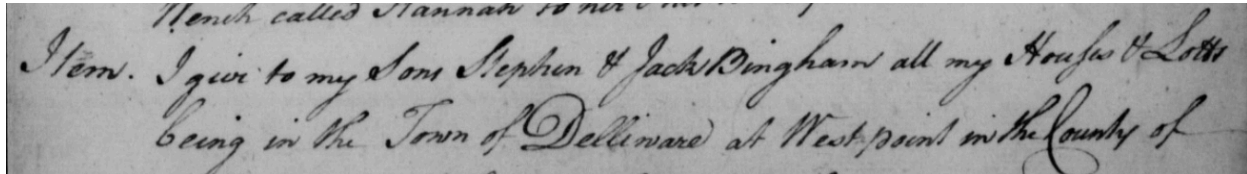 Wench called Hannah to her
Item. I give to my Sons Stephen & Jack Bingham all my Houses & Lotts
being in the Town of Delliware at West point in the County of